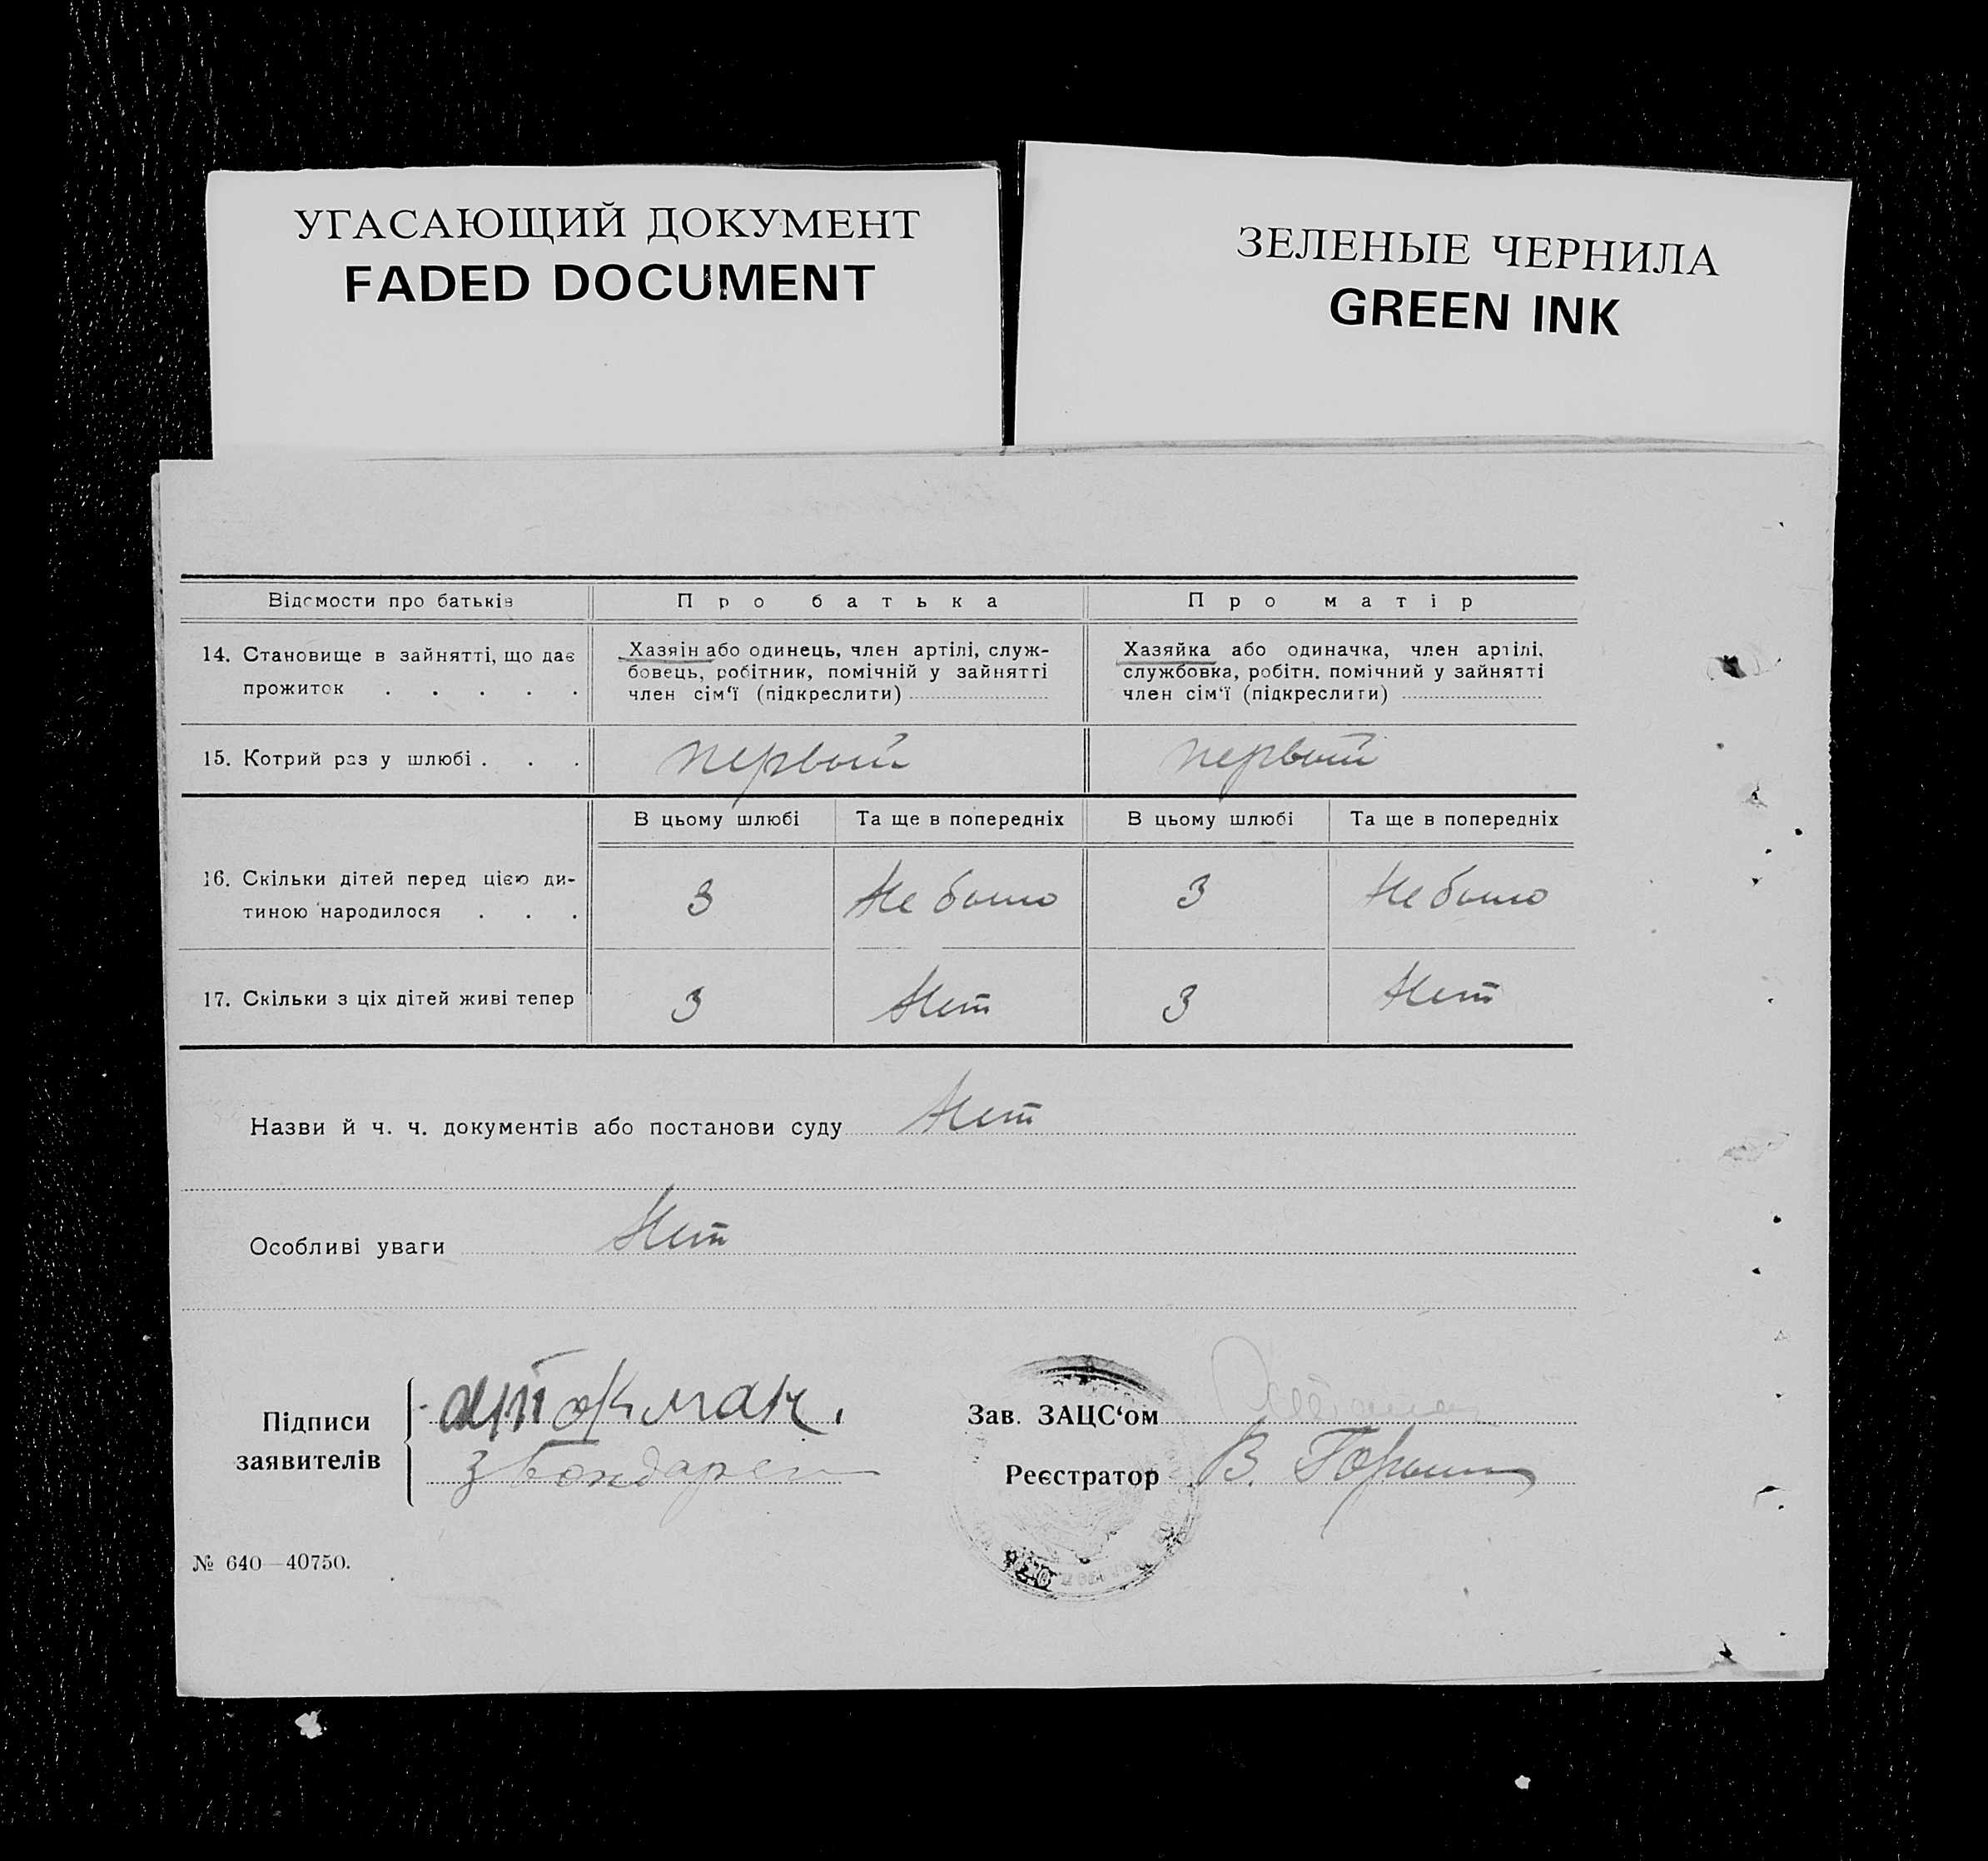 УГАСАЮЩИЙ ДОКУМЕНТ
FADED DOCUMENT
ЗЕЛЕНЫЕ ЧЕРНИЛА
GREEN INK
Відомости про батьків
Про батька
Про матір
14. Становище в зайнятті, що дає
прожиток . . . . .
Хазяїн або одинець, член артілі, служ-
бовець, робітник, помічній у зайнятті
член сім'ї (підкреслити)
Хазяйка або одиначка, член артілі,
службовка, робітн. помічний у зайнятті
член сім'ї (підкреслити)
15. Котрий раз у шлюбі . . .
первый
первый
В цьому шлюбі
Та ще в попередніх
В цьому шлюбі
Та ще в попередніх
16. Скільки дітей перед цією ди-
тиною народилося . . .
3
Не было
3
Не было
17. Скільки з ціх дітей живі тепер
3
Нет
3
Нет
Назви й ч. ч. документів або постанови суду Нет
Особливі уваги Нет
Підписи
заявителів
Зав. ЗАЦС'ом
Реєстратор В.
№ 640—40750.